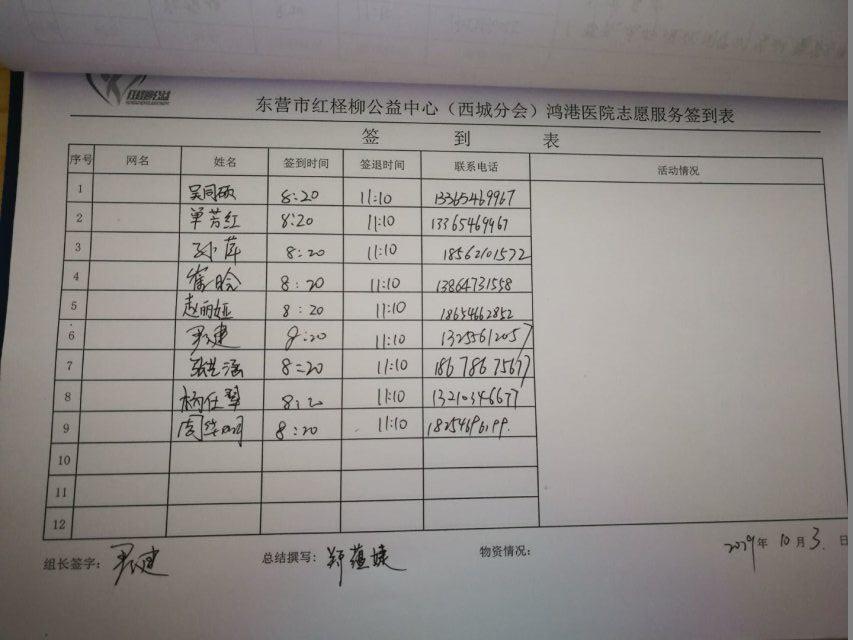 东营市红柽柳公益中心（西城分会）鸿港医院志愿服务签到表
签 到 表
序号 网名 姓名 签到时间 签退时间 联系电话 活动情况
1 吴同硕 8:20 11:10 13365469967
2 单芳红 8:20 11:10 13365469967
3 孙萍 8:20 11:10 18562101572
4 8:20 11:10 13864731558
5 赵丽娅 8:20 11:10 18654662852
6 8:20 11:10 13255612057
7 8:20 11:10 18678675677
8 杨仕翠 8:20 11:10 13210346677
9 周华 8:20 11:10 18254696199.
10
11
12
组长签字： 总结撰写：郑蕴婕 物资情况： 2019年 10月 3. 日